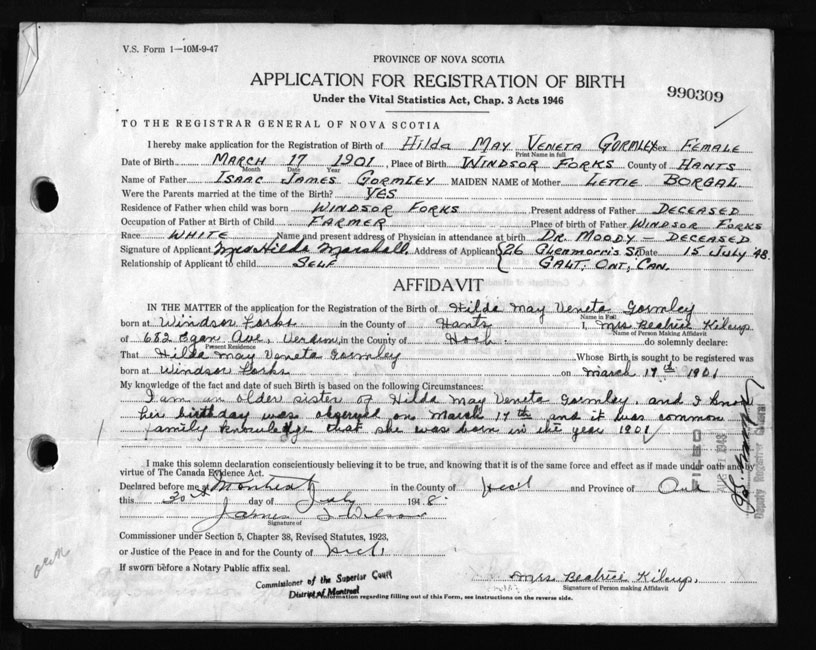 V.S. Form 1—10M-9-47
PROVINCE OF NOVA SCOTIA
APPLICATION FOR REGISTRATION OF BIRTH
990309
Under the Vital Statistics Act, Chap. 3 Acts 1946
TO THE REGISTRAR GENERAL OF NOVA SCOTIA
I hereby make application for the Registration of Birth of Hilda May Veneta Gormley Sex Female
Print Name in full
Date of Birth March 17 1901, Place of Birth Windsor Forks County of Hants
Month Date Year
Name of Father Isaac James Gormley MAIDEN NAME of Mother Lettie Borgal
Were the Parents married at the time of the Birth? Yes
Residence of Father when child was born Windsor Forks Present address of Father Deceased
Occupation of Father at Birth of Child Farmer Place of birth of Father Windsor Forks
Race White Name and present address of Physician in attendance at birth Dr. Moody - Deceased
Signature of Applicant Mrs Hilda Marshall, Address of Applicant 26 Glenmorris St Date 15 July '48.
Relationship of Applicant to child Self Galt, Ont, Can.
AFFIDAVIT
IN THE MATTER of the application for the Registration of the Birth of Hilda May Veneta Gormley
Name in Full
born at Windsor Forks in the County of Hants I, Mrs Beatrice
Name of Person Making Affidavit
of 682 Egan Ave, Verdun, in the County of do solemnly declare:
Present Residence
That Hilda May Veneta Gormley Whose Birth is sought to be registered was
born at Windsor Forks on March 17th 1901
My knowledge of the fact and date of such Birth is based on the following Circumstances:
I am an older sister of Hilda May Veneta Gormley, and I know
her birthday was observed on March 17th and it was common
family knowledge that she was born in the year 1901
I make this solemn declaration conscientiously believing it to be true, and knowing that it is of the same force and effect as if made under oath and by
virtue of The Canada Evidence Act.
Declared before me at Montreal in the County of and Province of
this 20 day of July 1948.
James Wilson
Signature of
Commissioner under Section 5, Chapter 38, Revised Statutes, 1923,
or Justice of the Peace in and for the County of
If sworn before a Notary Public affix seal.
Commissioner of the Superior Court
District of Montreal
Mrs Beatrice
Signature of Person making Affidavit
Information regarding filling out of this Form, see instructions on the reverse side.
FILED
AUG 1948
Deputy Registrar General